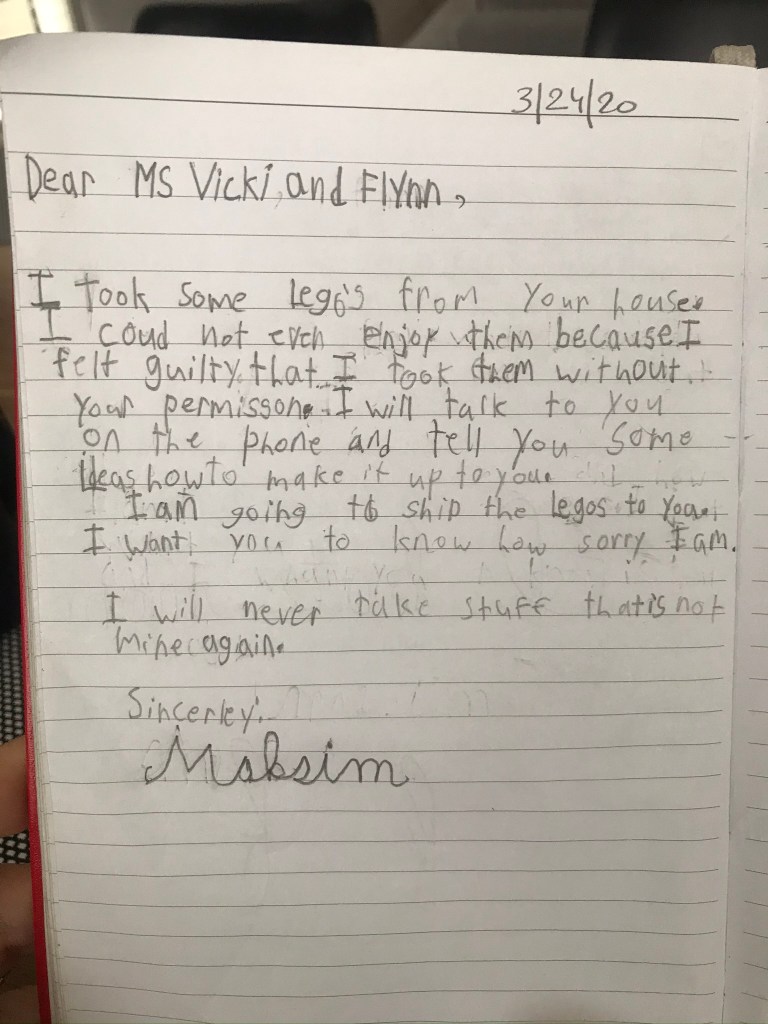 3/24/20
Dear MS Vicki and Flynn,
I took some lego's from your house.
I coud not even enjoy them because I
felt guilty that I took them without
your permisson. I will talk to you
on the phone and tell you some
Ideas how to make it up to you.
I am going to ship the legos to you.
I want you to know how sorry I am.
I will never take stuff that is not
mine again.
Sincerley,
Maksim